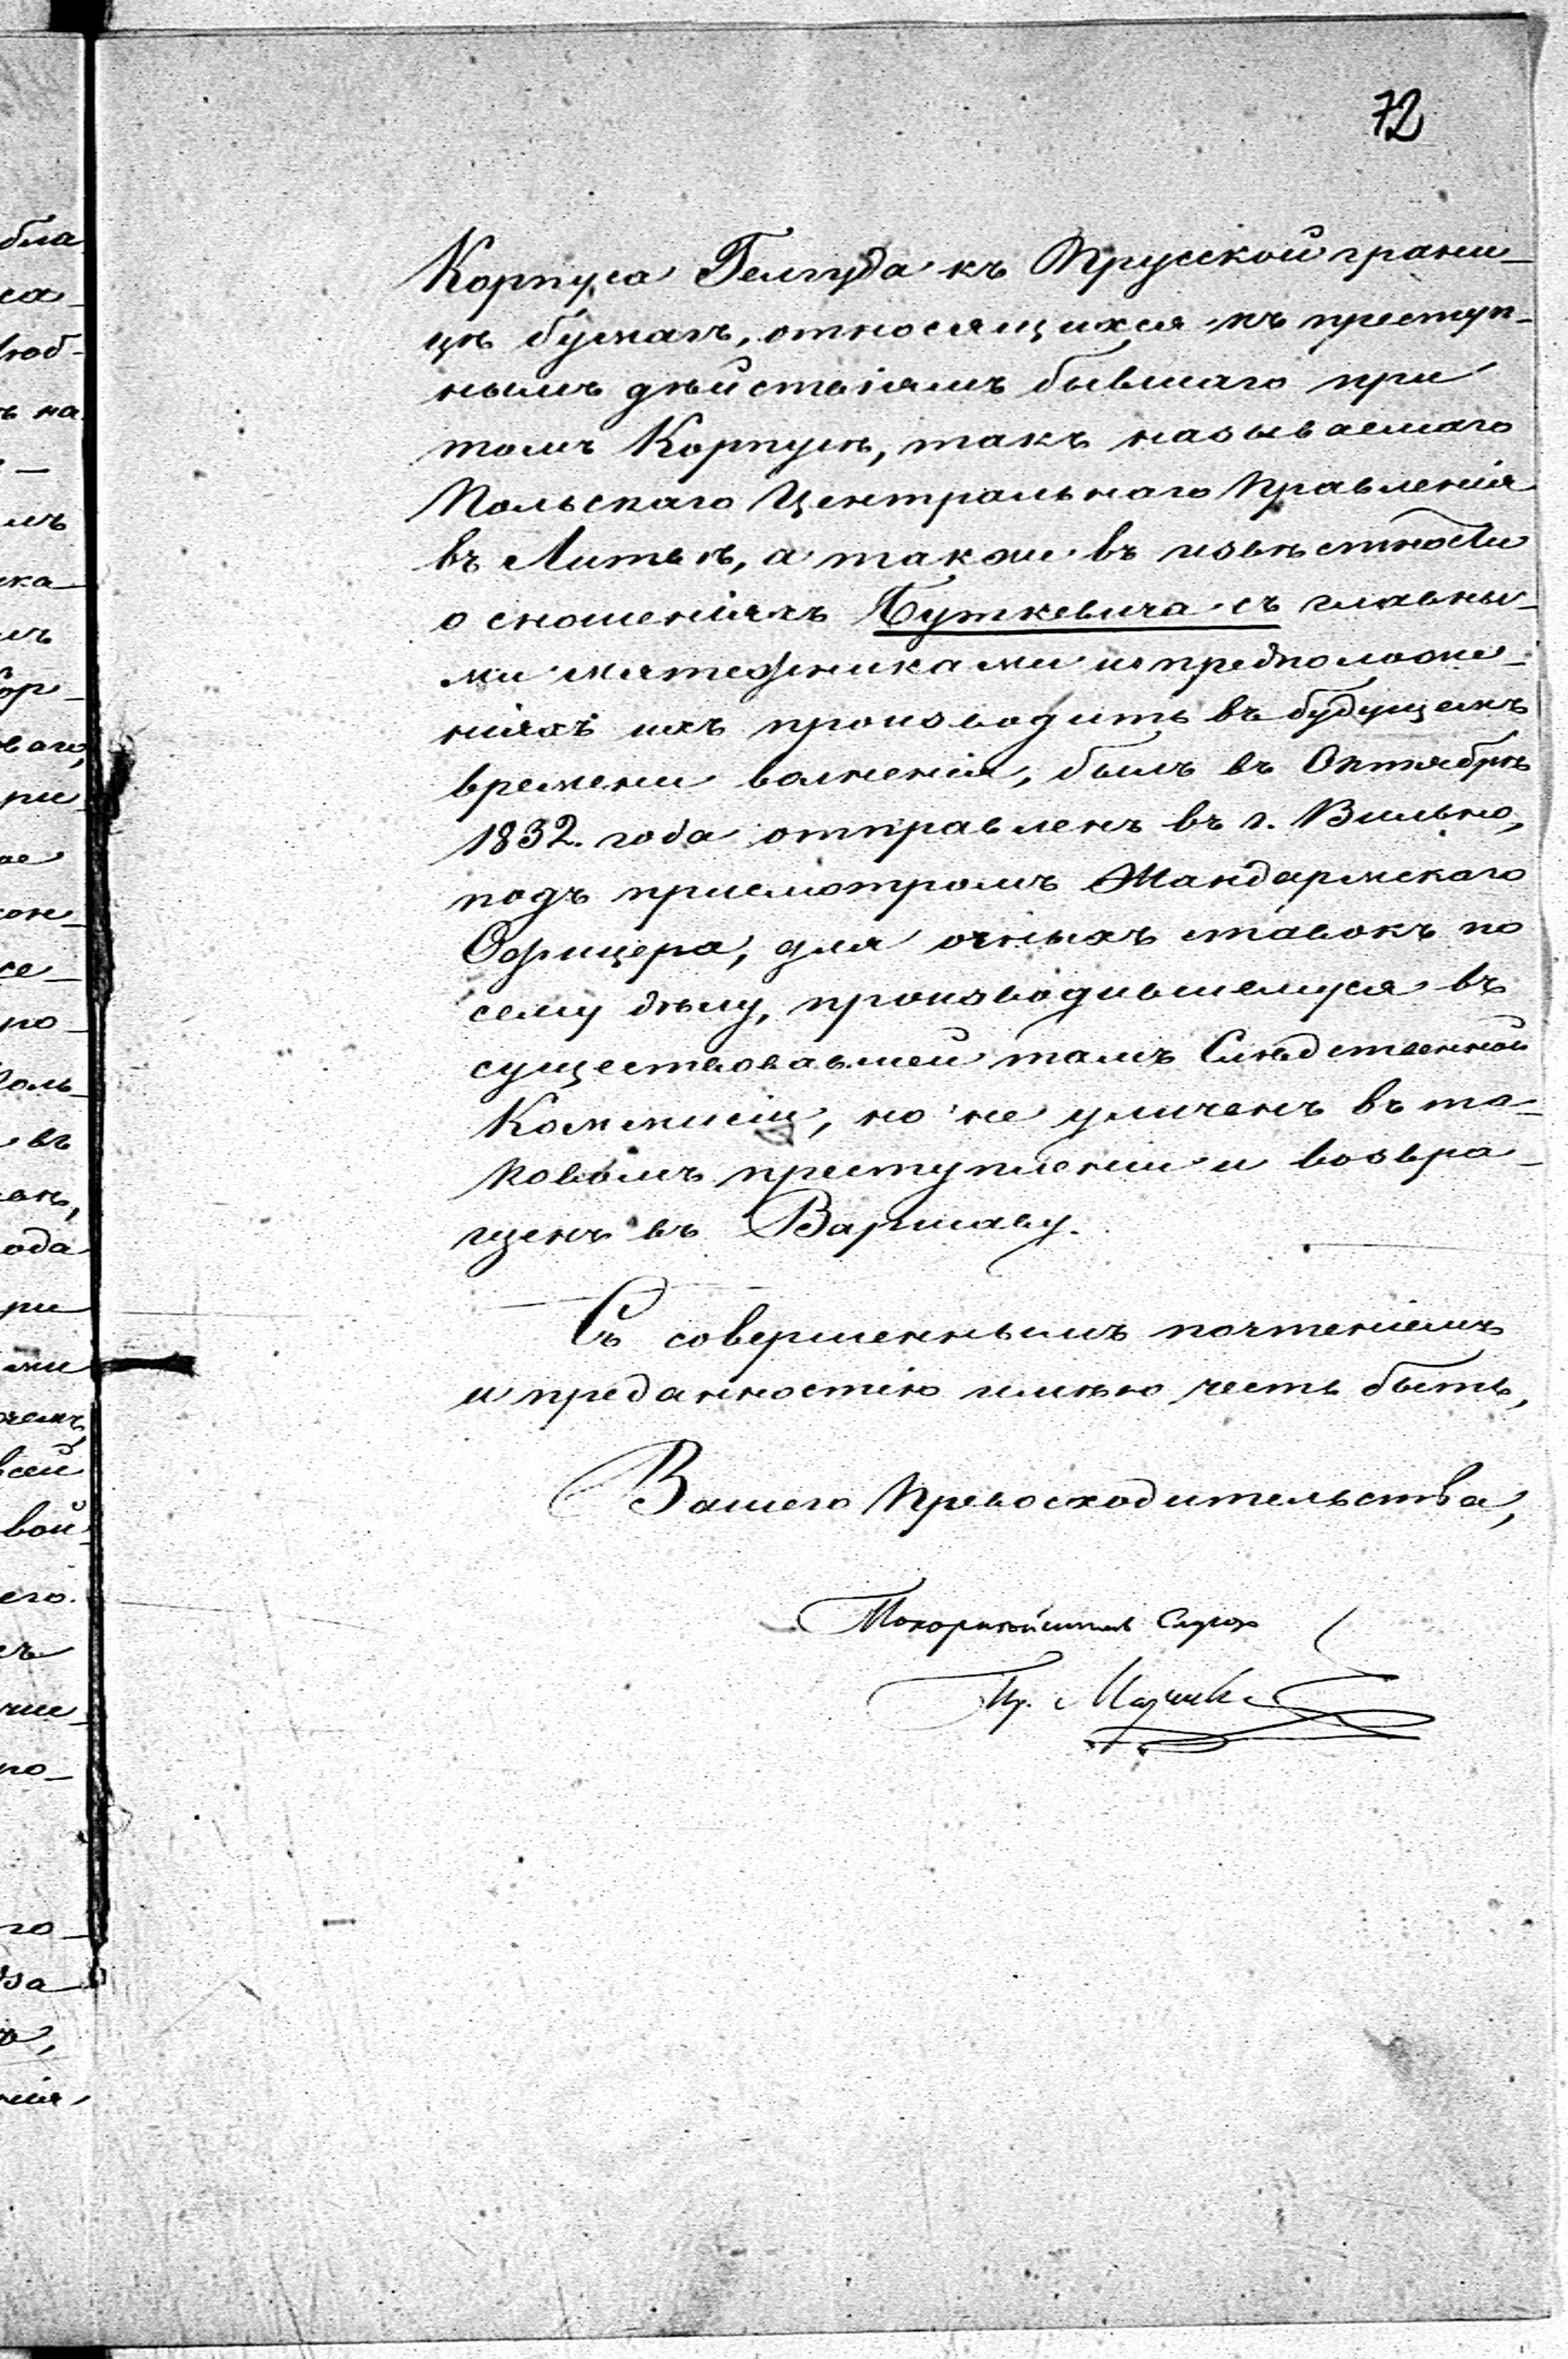 72
Корпуса Гелгуда къ Прусской грани-
цѣ бумагъ, относящихся къ преступ-
нымъ дѣйствіямъ бывшаго при
томъ Корпусѣ, такъ называемаго
Польскаго Центральнаго Правленія
въ Литвѣ, а также въ извѣстности
о сношеніяхъ Буткевича съ главны-
ми мятежниками и предположе-
ніяхъ ихъ производить въ будущемъ
времени волненія, былъ въ Октябрѣ
1832. года отправленъ въ г. Вильно,
подъ присмотромъ Жандармскаго
Офицера, для очныхъ ставокъ по
сему дѣлу, производившемуся въ
существовавшей тамъ Слѣдственной
Коммисіи, но не уличенъ въ та-
ковомъ преступленіи и возвра-
щенъ въ Варшаву.
Съ совершеннымъ почтеніемъ
и преданностію имѣю честь быть,
Вашего Превосходительства,
Покорнѣйшій Слуга
бла
са-
люб-
ъ на
мъ
ска-
ор-
ри
се-
ро-
оль-
въ
ода
ри
ми
вой
его.
по-
го-
за
нія